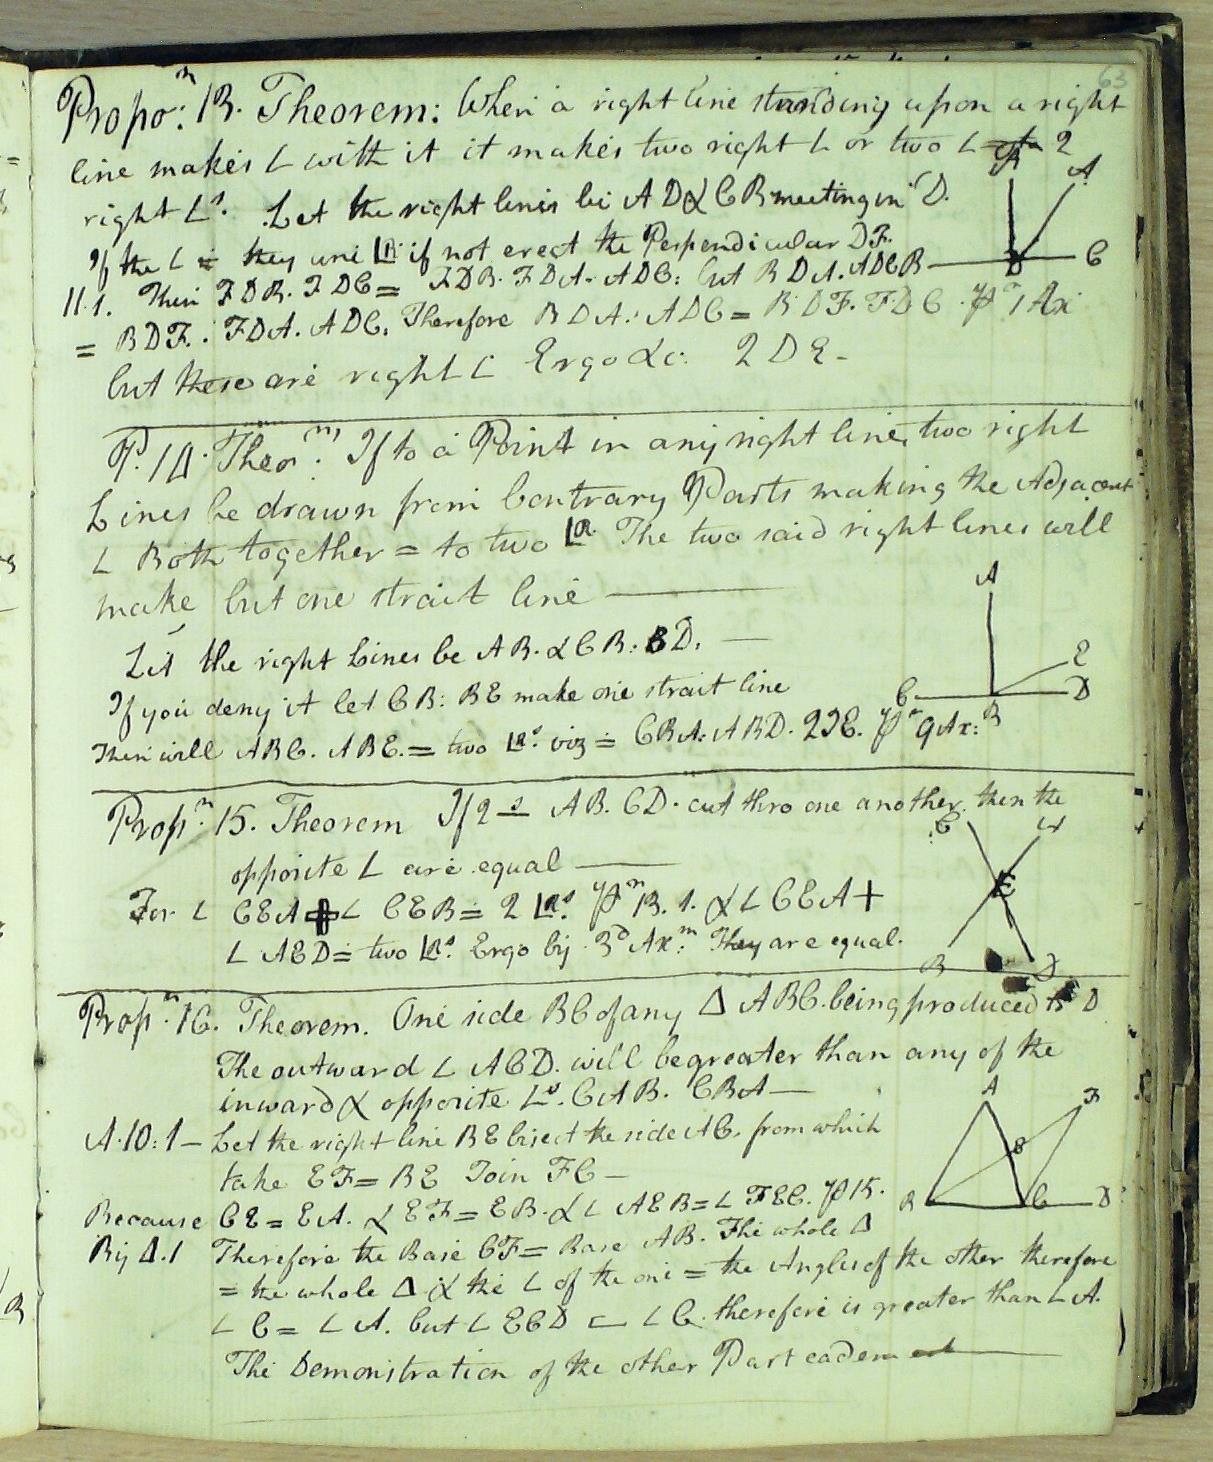 63
Propo:n 13. Theorem: When a right line standing upon a right
line makes ∠ with it it makes two right ∠ or two ∠ = to 2
right ∠s. Let the right lines be AD & CB meeting in D.
If the ∠ = they are ∟R if not erect the Perpendicular DF.
11.1. Then FDB. FDC = FDB. FDA. ADC: but BDA. ADC
= BDF. FDA. ADC. Therefore BDA. ADC = BDF. FDC. ꝑn 1 Ax
but these are right ∠ Ergo &c. 2DE-
F A
B D C
P. 14. Theorm. If to a Point in any right line, two right
Lines be drawn from Contrary Parts making the Adjacent
∠ Both together = to two ∟R. The two said right lines will
make but one strait line
Let the right Lines be AB. & CB: BD.
If you deny it let CB: BE make one strait line
Then will ABC. ABE. = two ∟Rs. viz = CBA: ABD. 2JE. ꝑn 9 Ax:
A
E
C B D
Propn. 15. Theorem If 2 s AB. CD. cut thro one another, then the
opposite ∠ are equal
For ∠ CEA + ∠ CEB = 2 ∟Rs. ꝑn 13. 1. & ∠ CEA +
∠ AED = two ∟Rs. Ergo by 3d Axm. They are equal.
C A
E
B D
Propn. 16. Theorem. One side BC of any Δ ABC. being produced to D
The outward ∠ ACD. will be greater than any of the
inward & opposite ∠s. CAB. CBA—
A. 10: 1— Let the right line BE bisect the side AC. from which
take EF = BE Join FC—
Because CE = EA. & EF = EB. & ∠ AEB = ∠ FEC. ꝑ 15.
By 4.1 Therefore the Base CF = Base AB. The whole Δ
= the whole Δ & the ∠ of the one = the Angles of the other therefore
∠ C = ∠ A. but ∠ ECD ⊏ ∠ C. therefore is greater than ∠ A.
The Demonstration of the other Part eadem est
A F
E
B C D